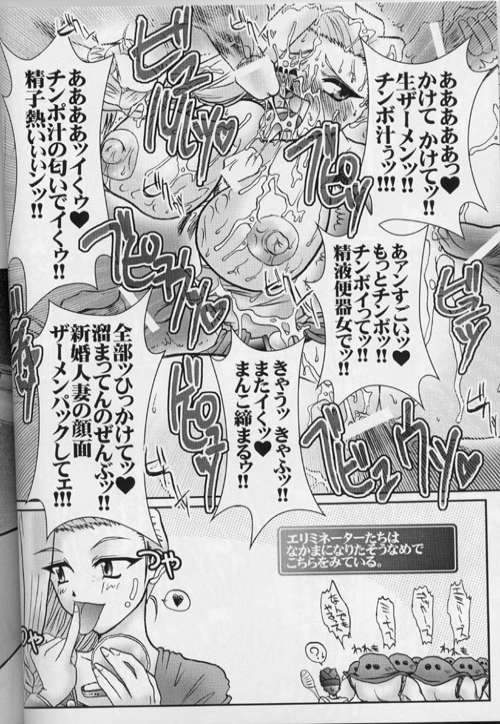 ああああああっ
かけて かけてッ!!
生ザーメンッ!!
チンポ汁ぅッ!!!
ああああッイくゥ♥
チンポ汁の匂いでイくゥ!!
精子熱いいいンッ!!
あァンすごいッ♥
もっとチンポッ!!
チンポイってッ!!
精液便器女でッ!!
きゃうッ きゃふッ♥
またイくッ
まんこ締まるゥ!!
全部ッひっかけてッ♥
溜まってんのぜんぶッ!!
新婚人妻の顔面
ザーメンパックしてェ!!!
エリミネーターたちは
なかまになりたそうなめで
こちらをみている。
つや
つや
われも
われも